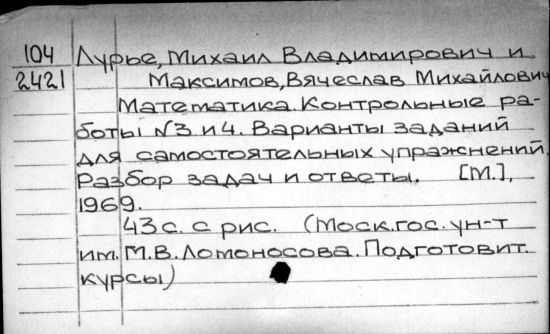 104 Лурье, Михаил Владимирович и
2421 Максимов, Вячеслав Михайлович
Математика. Контрольные ра-
боты №3 и 4. Варианты заданий
для самостоятельных упражнений.
Разбор задач и ответы. [М.],
1969.
43 с. с рис. (Моск. гос. ун-т
им. М.В. Ломоносова. Подготовит.
курсы)